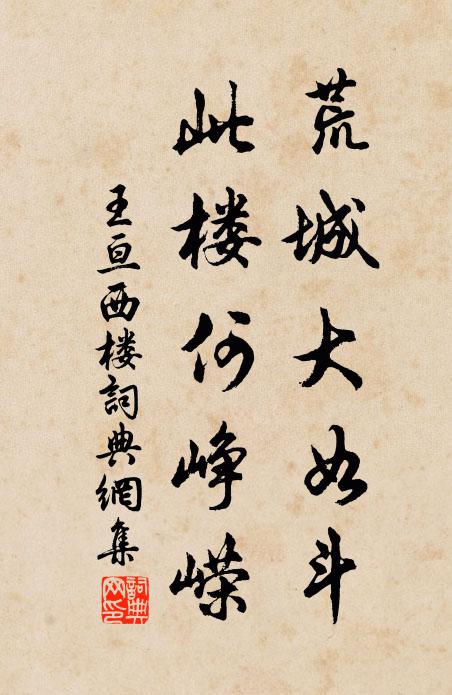 荒城大如斗
此楼何峥嵘
王亘西楼詞典網集
詞典网印